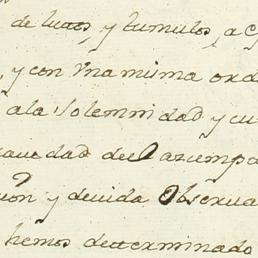 de lutos, y tumulos, a
y con Vna misma ord
ala Solemnidad y cu
avedad del
ion y devida Observa
hemos determinado